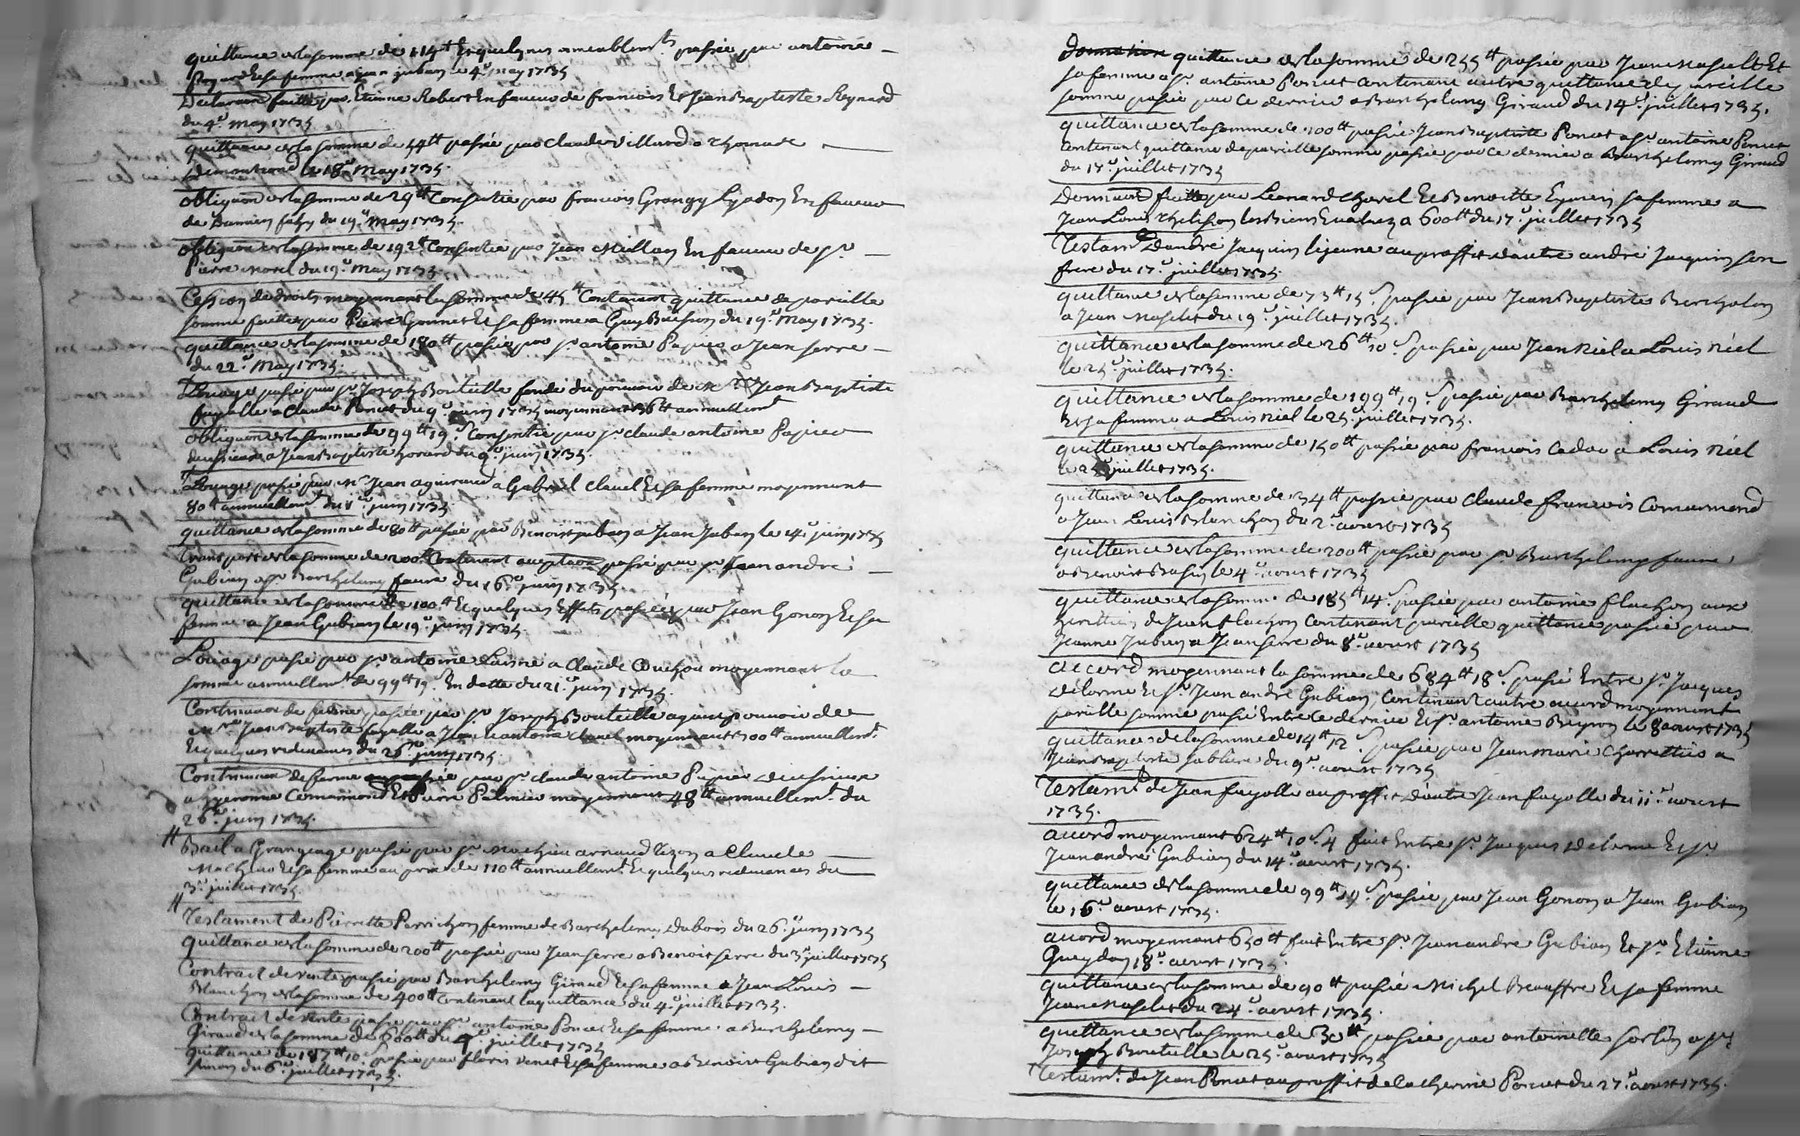 quittance de la somme de 114# Et quelques ameublemts passée par antoine
Et sa femme a jean juban le 4e may 1735
Declaraon faitte par Etienne Robert En faveur de francois Et Jean Baptiste Reynard
du 4e may 1735
quittance de la somme de 44# passée par Claude Villard a thomas
le 18e may 1735.
obligaon de la somme de 29# Consentie par francois Grangy En faveur
de Damien du 19e may 1735.
obligaon de la somme de 192# Consentie par Jean En faveur de sr
Pierre morel du 19e may 1735.
Cession de droits moyennant la somme de 45# Contenant quittance de pareille
somme faitte par Pierre Gonnet Et sa femme a Guy Buisson du 19e may 1735.
quittance de la somme de 180# passée par sr antoine Papier a Jean serre
du 22e may 1735.
Louage passé par sr Joseph Bouteille fondé du pouvoir de Jean Baptiste
fayolle a Claude Poncet du 9e juin 1735 moyennant 36# annuellemt
obligaon de la somme de 99# 19s Consentie par sr claude antoine Papier
a Jean Baptiste du 9e juin 1735.
Louage passé par Mr Jean aguiraud a Gabriel Clavel Et sa femme moyennant
80# annuellemt du juin 1735
quittance de la somme de 80# passée par Benoist juban a Jean Juban le 14e juin 1735
transport de la somme de 200# Contenant passé par sr Jean andré
Gubian a sr Barthelemy faure du 16e juin 1735.
quittance de la somme de 100# Et quelques Effets passée par Jean Gonon Et sa
femme a Jean Gubian le 19e juin 1735.
Louage passé par sr antoine a Claude Couchou moyennant la
somme annuellemt de 99# 19s En datte du 21e juin 1735.
Continuaon de ferme passée par sr Joseph Bouteille ayant pouvoir de
Mre Jean Baptiste fayolle a antoine Clavel moyennant 300# annuellemt
Et quelques redevances du 26e juin 1735.
Continuaon de ferme passée par sr claude antoine Papier
a Comarmond Et Pierre Palmier moyennant 48# annuellemt du
26e juin 1735.
Bail a Grangeage passé par sr Mathieu arnaud a Claude
Et sa femme au prix de 110# annuellemt Et quelques redevances du
3e juillet 1735
Testament de Pierrette Perrichon femme de Barthelemy dubois du 26e juin 1735
quittance de la somme de 200# passée par Jean serre a Benoist serre du 3e juillet 1735
Contract de vente passé par Barthelemy Giraud Et sa femme a Jean Louis
Blanchon de la somme de 400# Contenant la quittance du 4e juillet 1735.
Contract de vente passé par sr antoine Poncet Et sa femme a Barthelemy
Giraud de la somme de 600# du juillet 1735
quittance de 187# 10s passée par floris venet Et sa femme a Benoist Gubian dit
Simon du 6e juillet 1735.
quittance de la somme de 255# passée par Jean maselt Et
sa femme a sr antoine Poncet Contenant autre quittance de pareille
somme passée par Ce dernier a Barthelemy Giraud du 14e juillet 1735.
quittance de la somme de 100# passée Jean Baptiste Poncet a sr antoine Poncet
Contenant quittance de pareille somme passée par ce dernier a Barthelemy Giraud
du 15e juillet 1735
Donnaon faitte par Leonard Chavel Et Benoitte Eymin sa femme a
Jean Louis les Biens Evaluez a 600# du 17e juillet 1735
Testamt D'andré Jacquin le jeune au proffit d'autre andré Jacquin son
frere du 17e juillet 1735.
quittance de la somme de 73# 15s passée par Jean Baptiste Bartholon
a Jean maselet du 19e juillet 1735.
quittance de la somme de 26# 10s passée par Jean Riel a Louis Riel
le 25e juillet 1735.
quittance de la somme de 199# 19s passée par Barthelemy Giraud
Et sa femme a Louis Riel le 25e juillet 1735.
quittance de la somme de 150# passée par francois Cadou a Louis Riel
le juillet 1735.
quittance de la somme de 34# passée par Claude francois Comarmond
a Jean Louis Blanchon du 2e aoust 1735
quittance de la somme de 200# passée par sr Barthelemy faure
a Benoist le 4e aoust 1735
quittance de la somme de 185# 14s passée par antoine flachon aux
heritiers de Jean flachon Contenant pareille quittance passée par
Jeanne Juban a Jean serre du 8e aoust 1735
accord moyennant la somme de 684# 18s passé Entre sr Jacques
delorme Et sr Jean andré Gubian, Contenant autre accord moyennant
pareille somme passé Entre le dernier Et sr antoine Beyron le 8 aoust 1735
quittance de la somme de 14# 12s passée par Jean marie Charretier a
Jean Baptiste Sabliere du 9e aoust 1735
Testamt de Jean fayolle au proffit d'autre Jean fayolle du 11e aoust
1735.
accord moyennant 624# 10s 4 fait Entre sr Jacques delorme Et sr
Jean andré Gubian du 14e aoust 1735.
quittance de la somme de 99# passée par Jean Gonon a Jean Gubian
le 16e aoust 1735.
accord moyennant 650# fait Entre sr Jean andré Gubian Et sr Etienne
Gueydan 18e aoust 1735.
quittance de la somme de 90# passée Michel Beauffre Et sa femme
Jean maselet du 24e aoust 1735.
quittance de la somme de 30# passée par antoinette a sr
Joseph Bouteille le 25e aoust 1735
Testamt de Jean Poncet au proffit de Catherine Poncet du 27e aoust 1735.